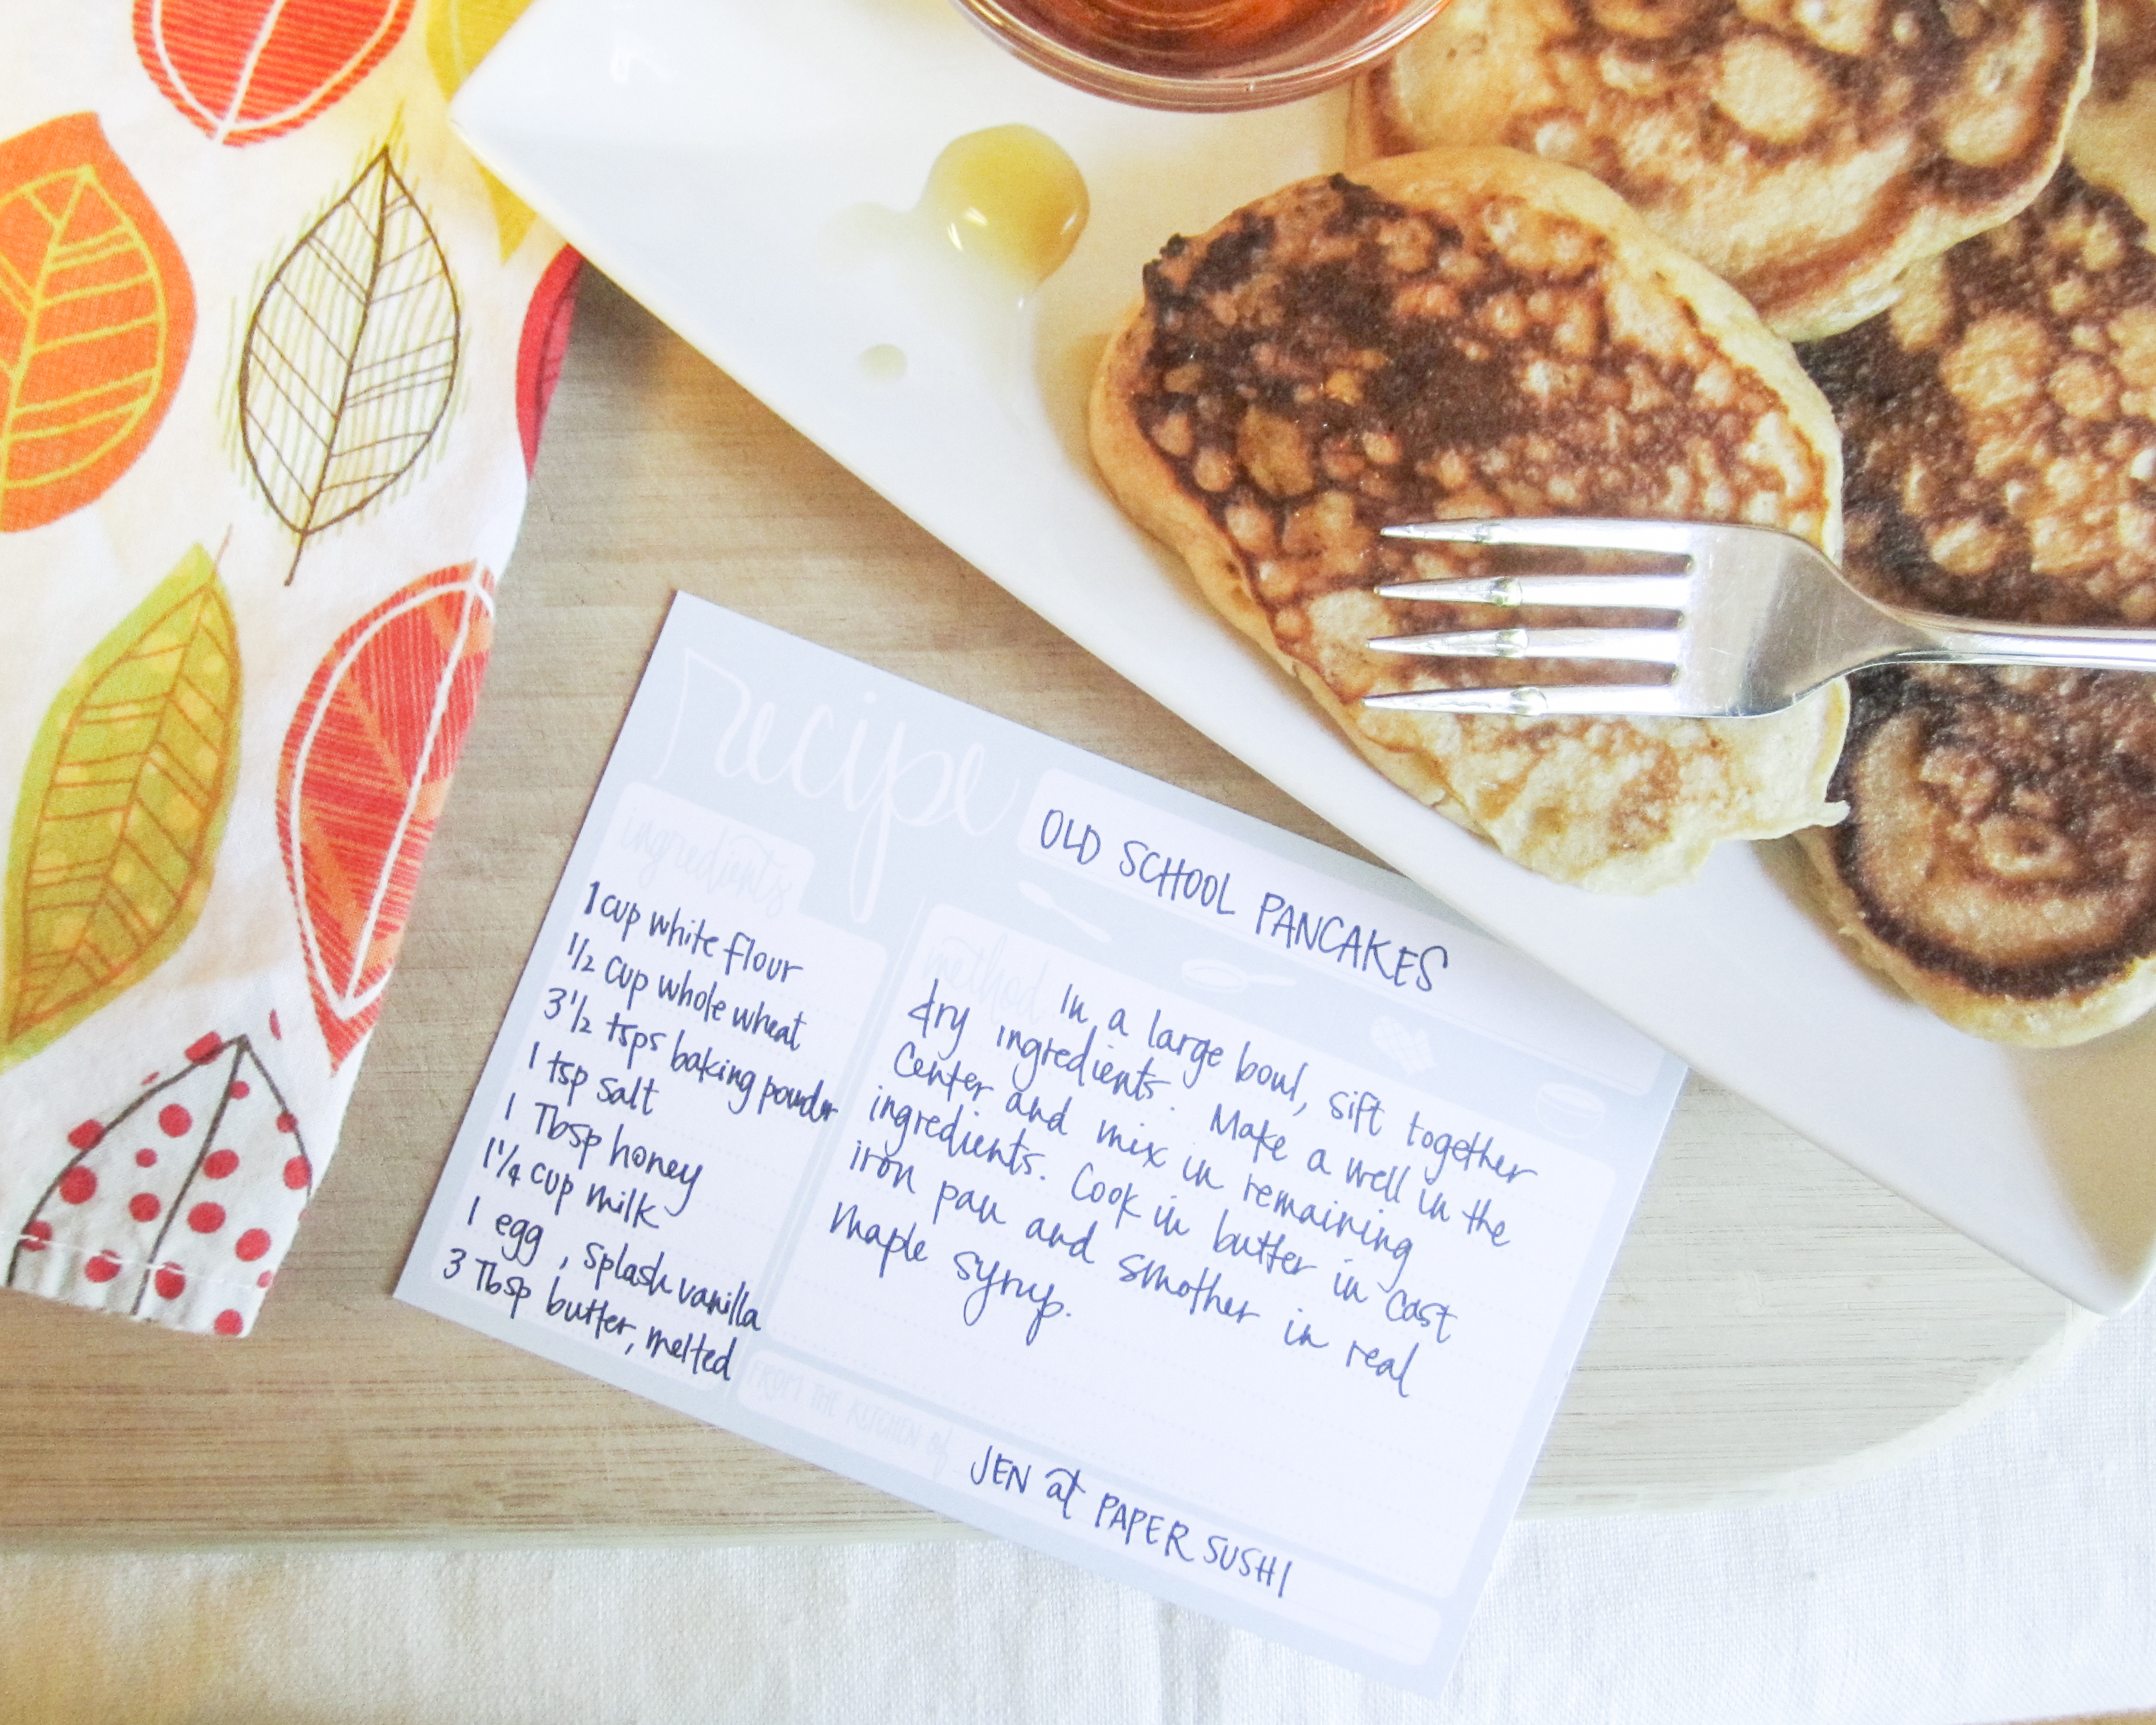 recipe
OLD SCHOOL PANCAKES
ingredients
1 cup white flour
1/2 cup whole wheat
3 1/2 tsps baking powder
1 tsp salt
1 Tbsp honey
1 1/4 cup milk
1 egg, splash vanilla
3 Tbsp butter, melted
method In a large bowl, sift together
dry ingredients. Make a well in the
center and mix in remaining
ingredients. Cook in butter in cast
iron pan and smother in real
maple syrup.
FROM THE KITCHEN of JEN at PAPER SUSHI